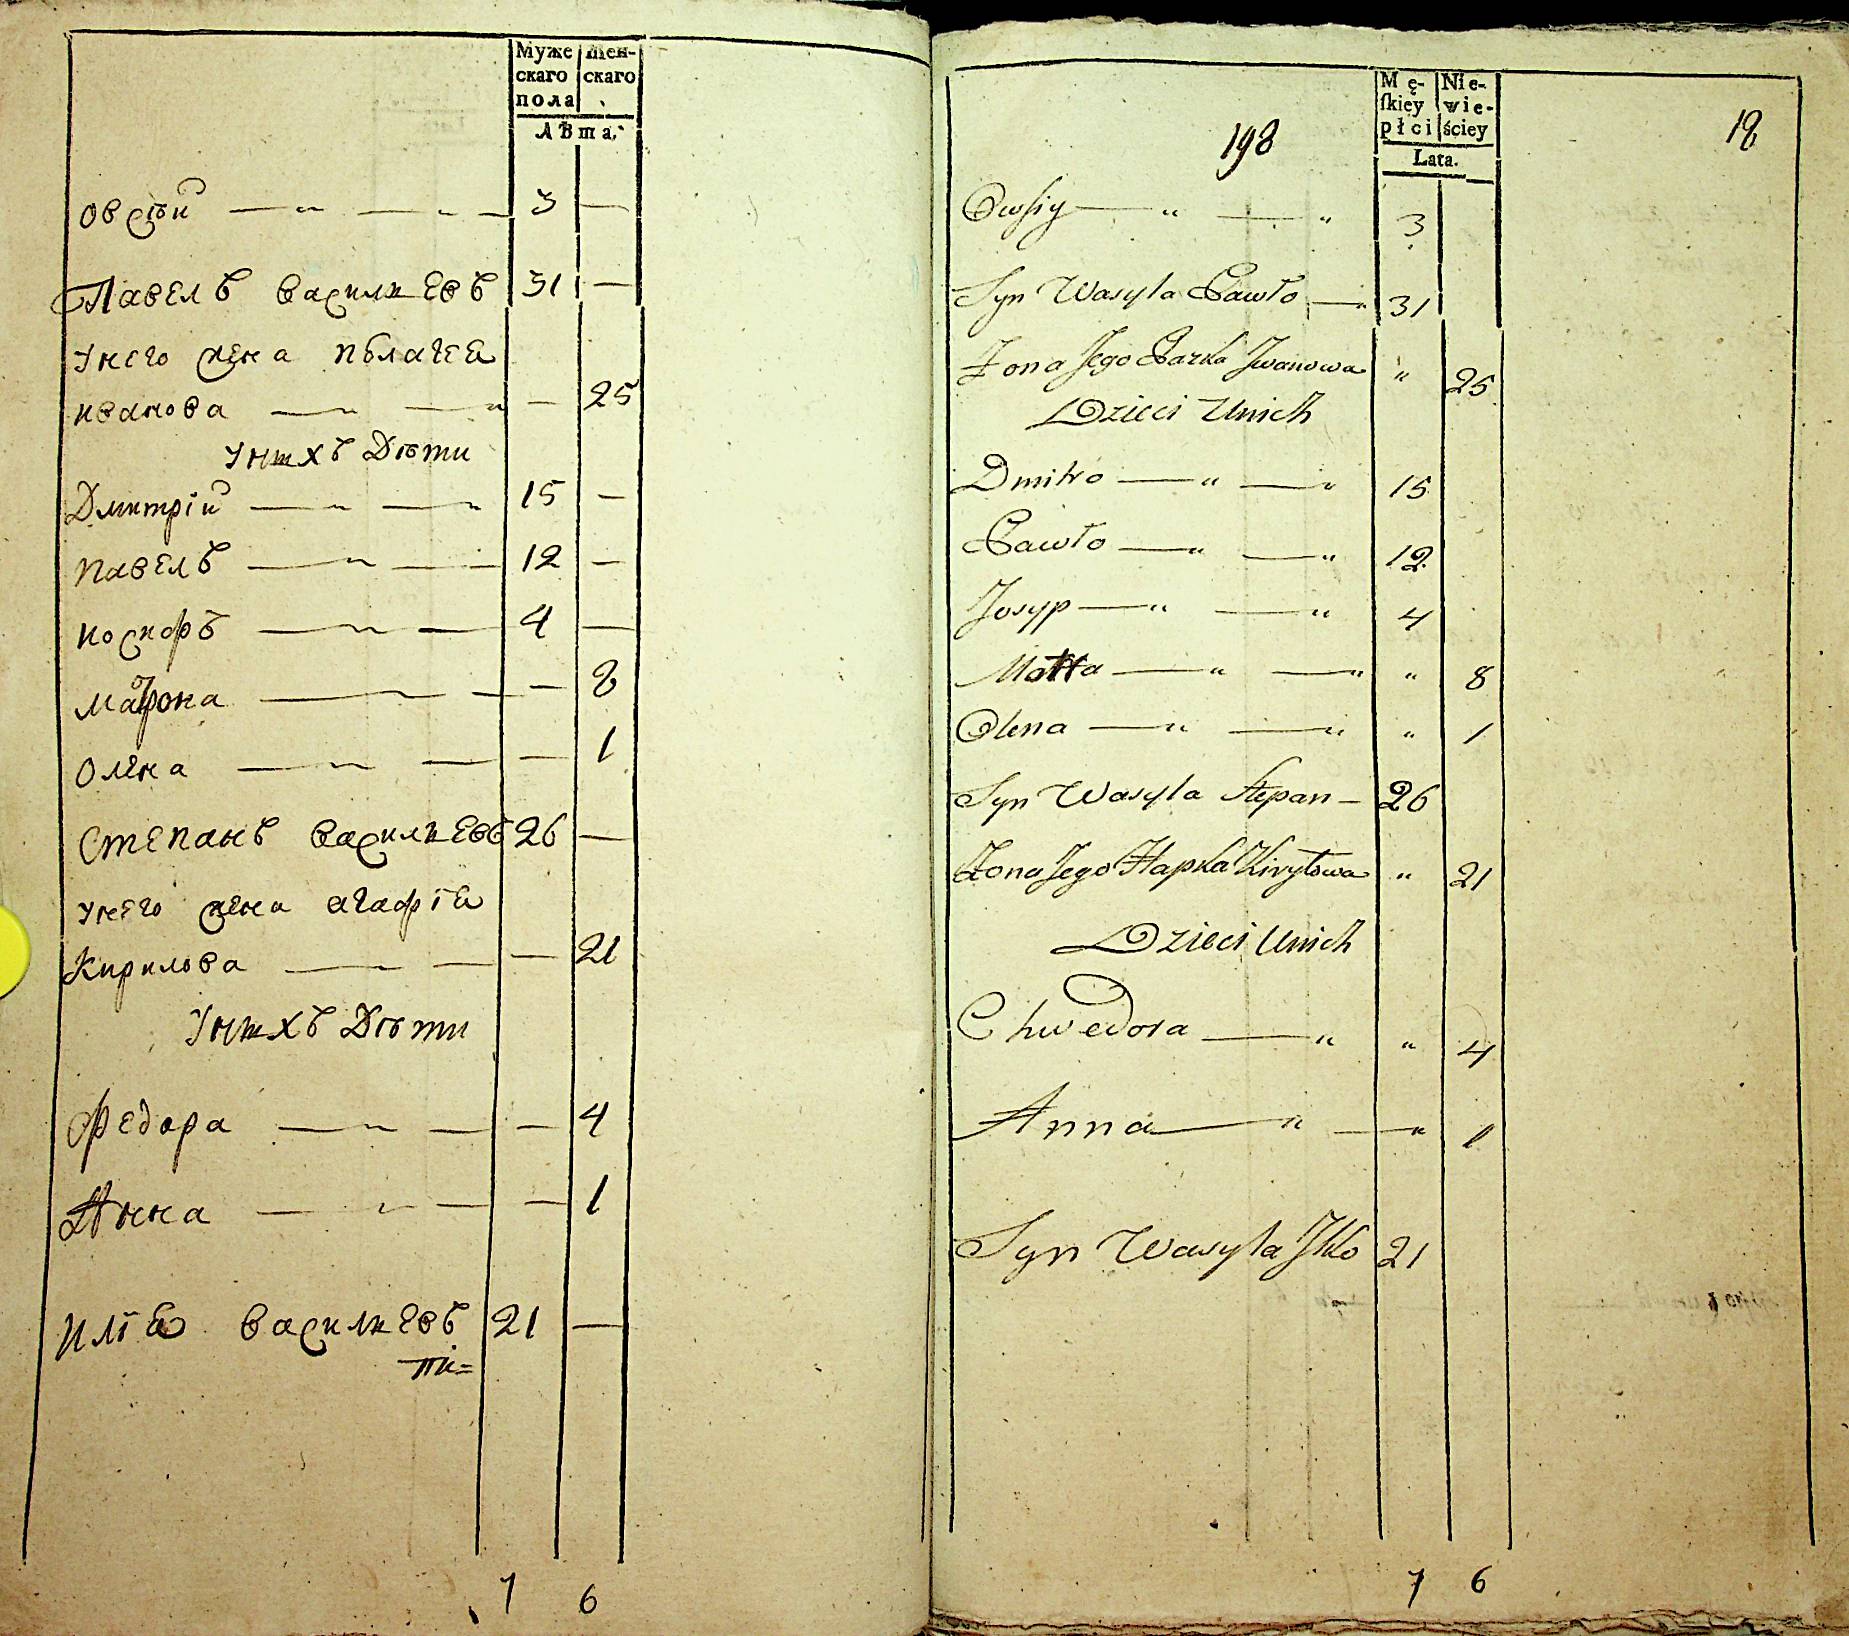 Муже Жен-
скаго скаго
пола
Лѣта.
Овсѣй 3 —
Павелъ Василиевъ 31 —
Унего жена Пелагеа
Иванова — 25
Унихъ Дѣти
Дмитрiй 15 —
Павелъ 12 —
4 —
Матрона — 8
Олена — 1
Степанъ Василиевъ 26 —
Унего жена Агафiа
Кирилова — 21
Унихъ Дѣти
Федора — 4
Анна — 1
Илiа Василиевъ 21 —
7 6
Mę- Nie-
ſkiey wie-
płci ściey
Lata.
198
18
Owsiy — „ — „ 3
Syn Wasyla Pawło — 31
Żona Jego Parka Jwanowa „ 25
Dzieci Unich
Dmitro — „ — „ 15
Pawło — „ — „ 12
Josyp — „ — „ 4
— „ — „ „ 8
Olena — „ — „ „ 1
Syn Wasyla Stepan — 26
Żona Jego Hapka Kiryłowa „ 21
Dzieci Unich
Chwedora — „ „ 4
Anna — „ — „ 1
Syn Wasyla Jlko 21
7 6